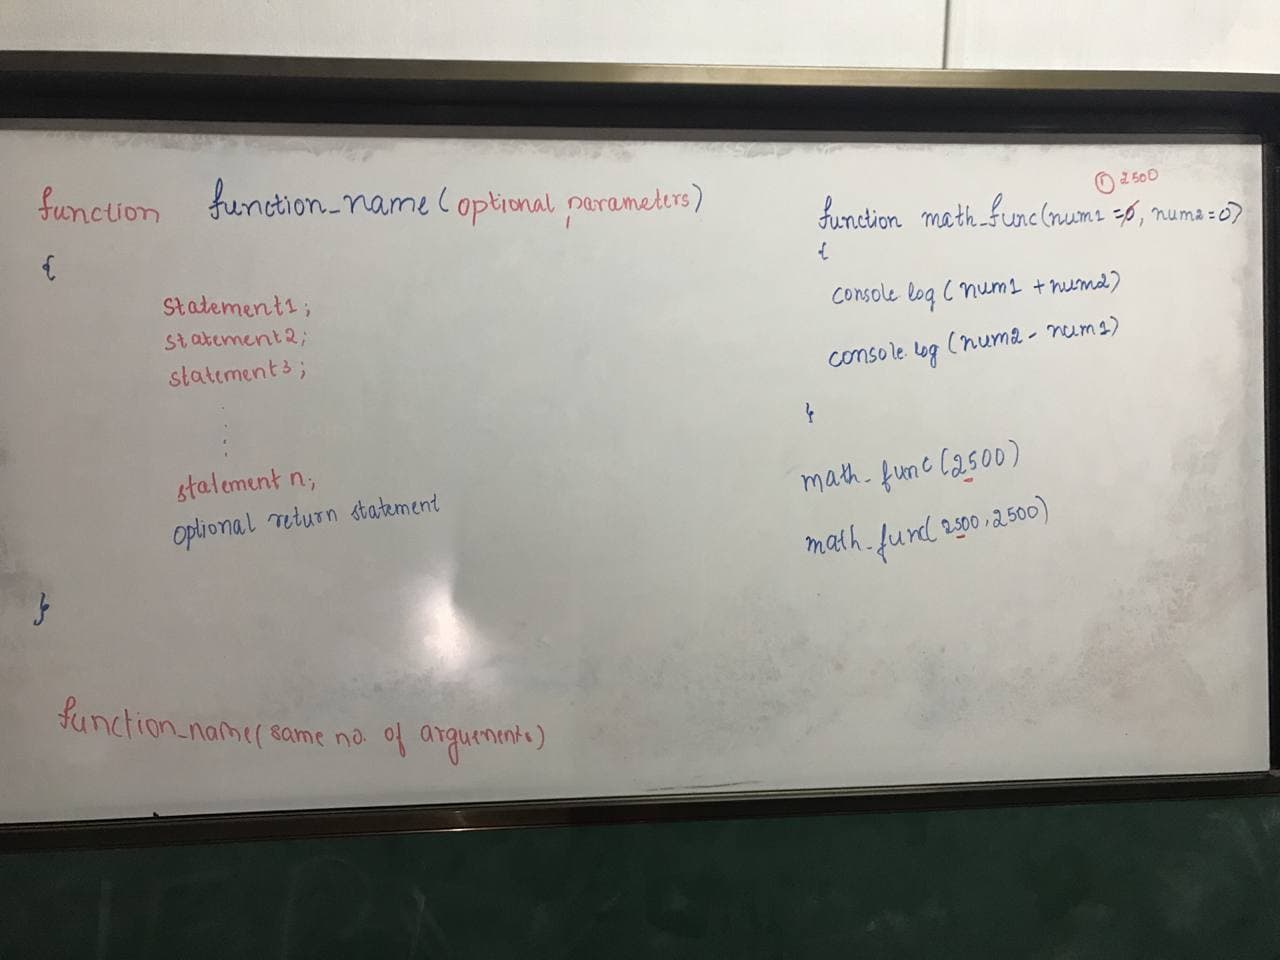 function function_name(optional parameters)
{
statement1;
statement2;
statement3;
statement n;
optional return statement
}
function_name(same no. of arguements)
① 2500
function math_func(num1 =0, num2=0)
{
console log (num1 +num2)
console.log (num2 - num1)
}
math_func(2500)
math_func(2500,2500)